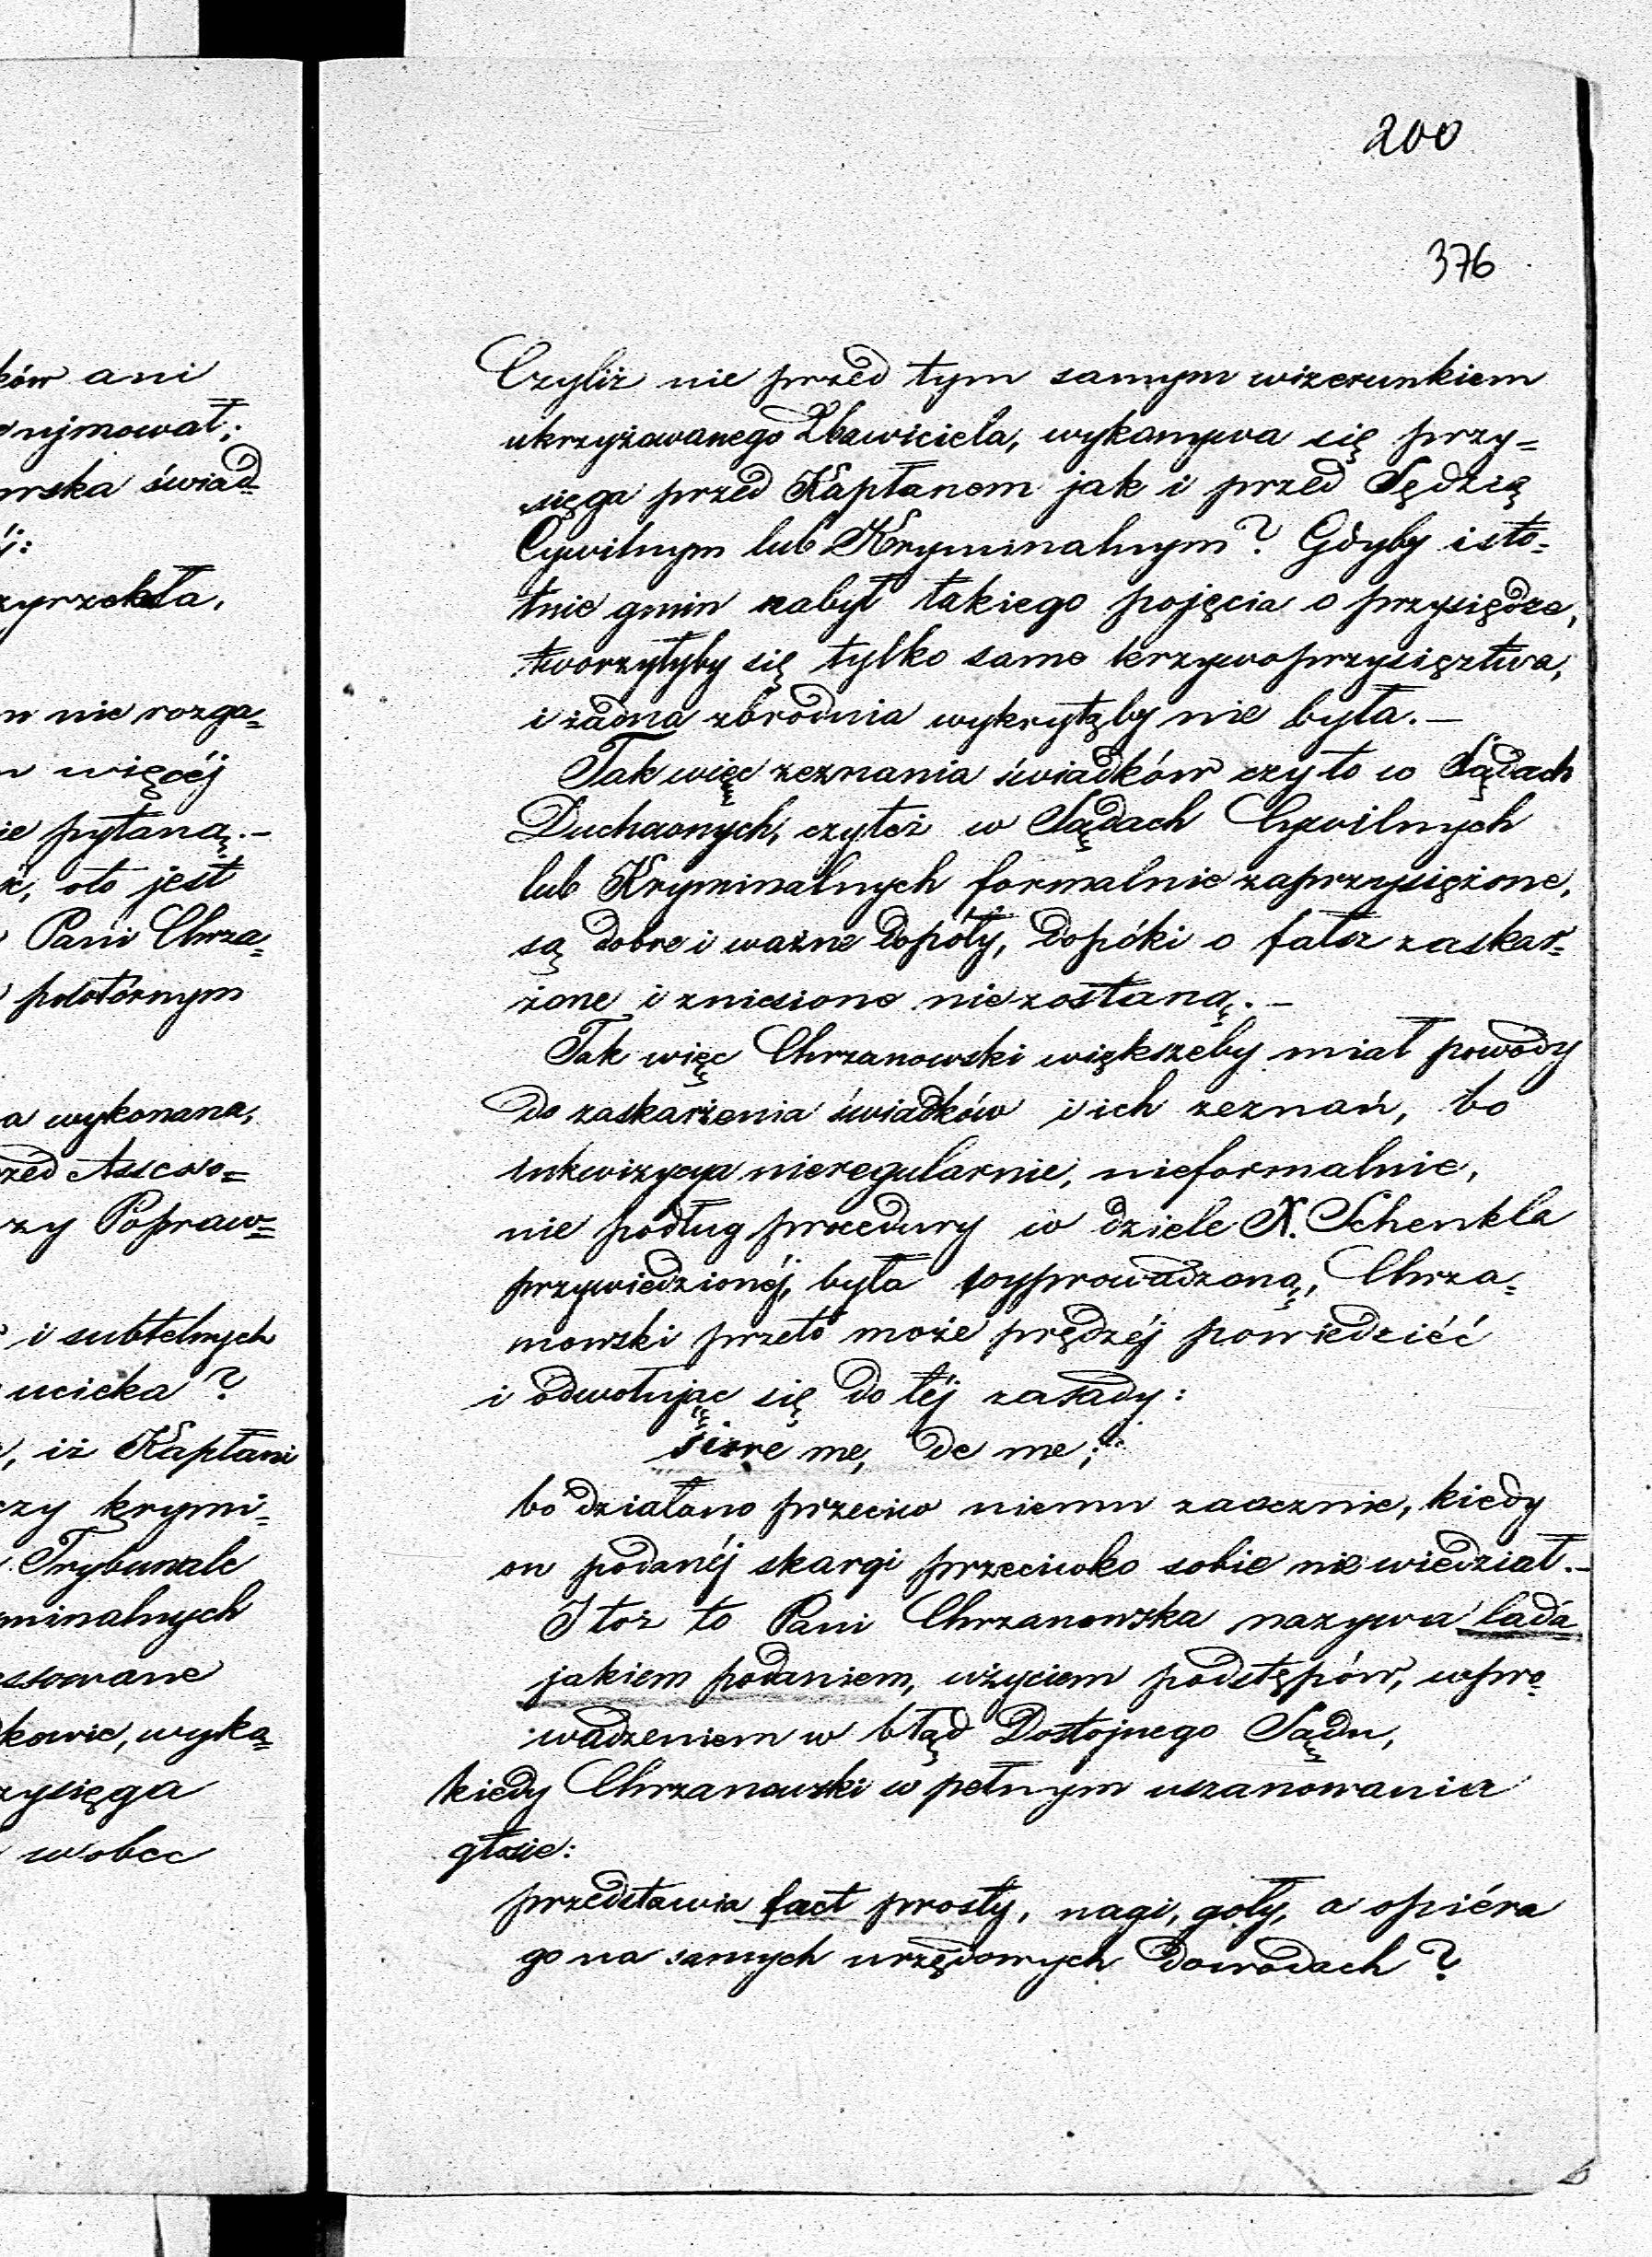 200
376
ków ani
ujmował;
wska świad-
j:
zyrzekła,
m nie rozga-
n więcéj
ie pytaną.-
k, oto jest
Pani Chrza-
powtórnym
a wykonana,
zed Assesso-
zy Popraw-
i subtelnych
ucieka?
, iż Kapłani
czy krymi-
Trybunale
minalnych
ssowane
kowie, wyka-
zysięga
wobec
Czyliż nie przed tym samym wizerunkiem
ukrzyżowanego Zbawiciela, wykonywa się przy-
sięga przed Kapłanem jak i przed Sędzią
Cywilnym lub Kryminalnym? Gdyby isto-
tnie gmin nabył takiego pojęcia o przysiędze,
tworzyłyby się tylko same krzywoprzysięztwa,
i żadna zbrodnia wykrytąby nie była.—
Tak więc zeznania świadków czy to w Sądach
Duchownych, czyteż w Sądach Cywilnych
lub Kryminalnych formalnie zaprzysiężone,
są dobre i ważne dopóty, dopóki o fałsz zaskar-
żone i zniesione nie zostaną.—
Tak więc Chrzanowski większeby miał powody
do zaskarżenia świadków i ich zeznań, bo
inkwizycya nieregularnie, nieformalnie,
nie podług procedury w dziele X. Schenkla
przywiedzionéj, była wyprowadzoną, Chrza-
nowski przeto może prędzéj powiedziéć
i odwołując się do téj zasady:
sine me, de me;"
bo działano przeciw niemu zaocznie, kiedy
on podanéj skargi przeciwko sobie nie wiedział.—
I toż to Pani Chrzanowska nazywa lada
jakiem podaniem, użyciem podstępów, wpro-
wadzeniem w błąd Dostojnego Sądu,
kiedy Chrzanowski w pełnym uszanowania
głosie:
przedstawia fact prosty, nagi, goły, a opiéra
go na samych urzędowych dowodach?